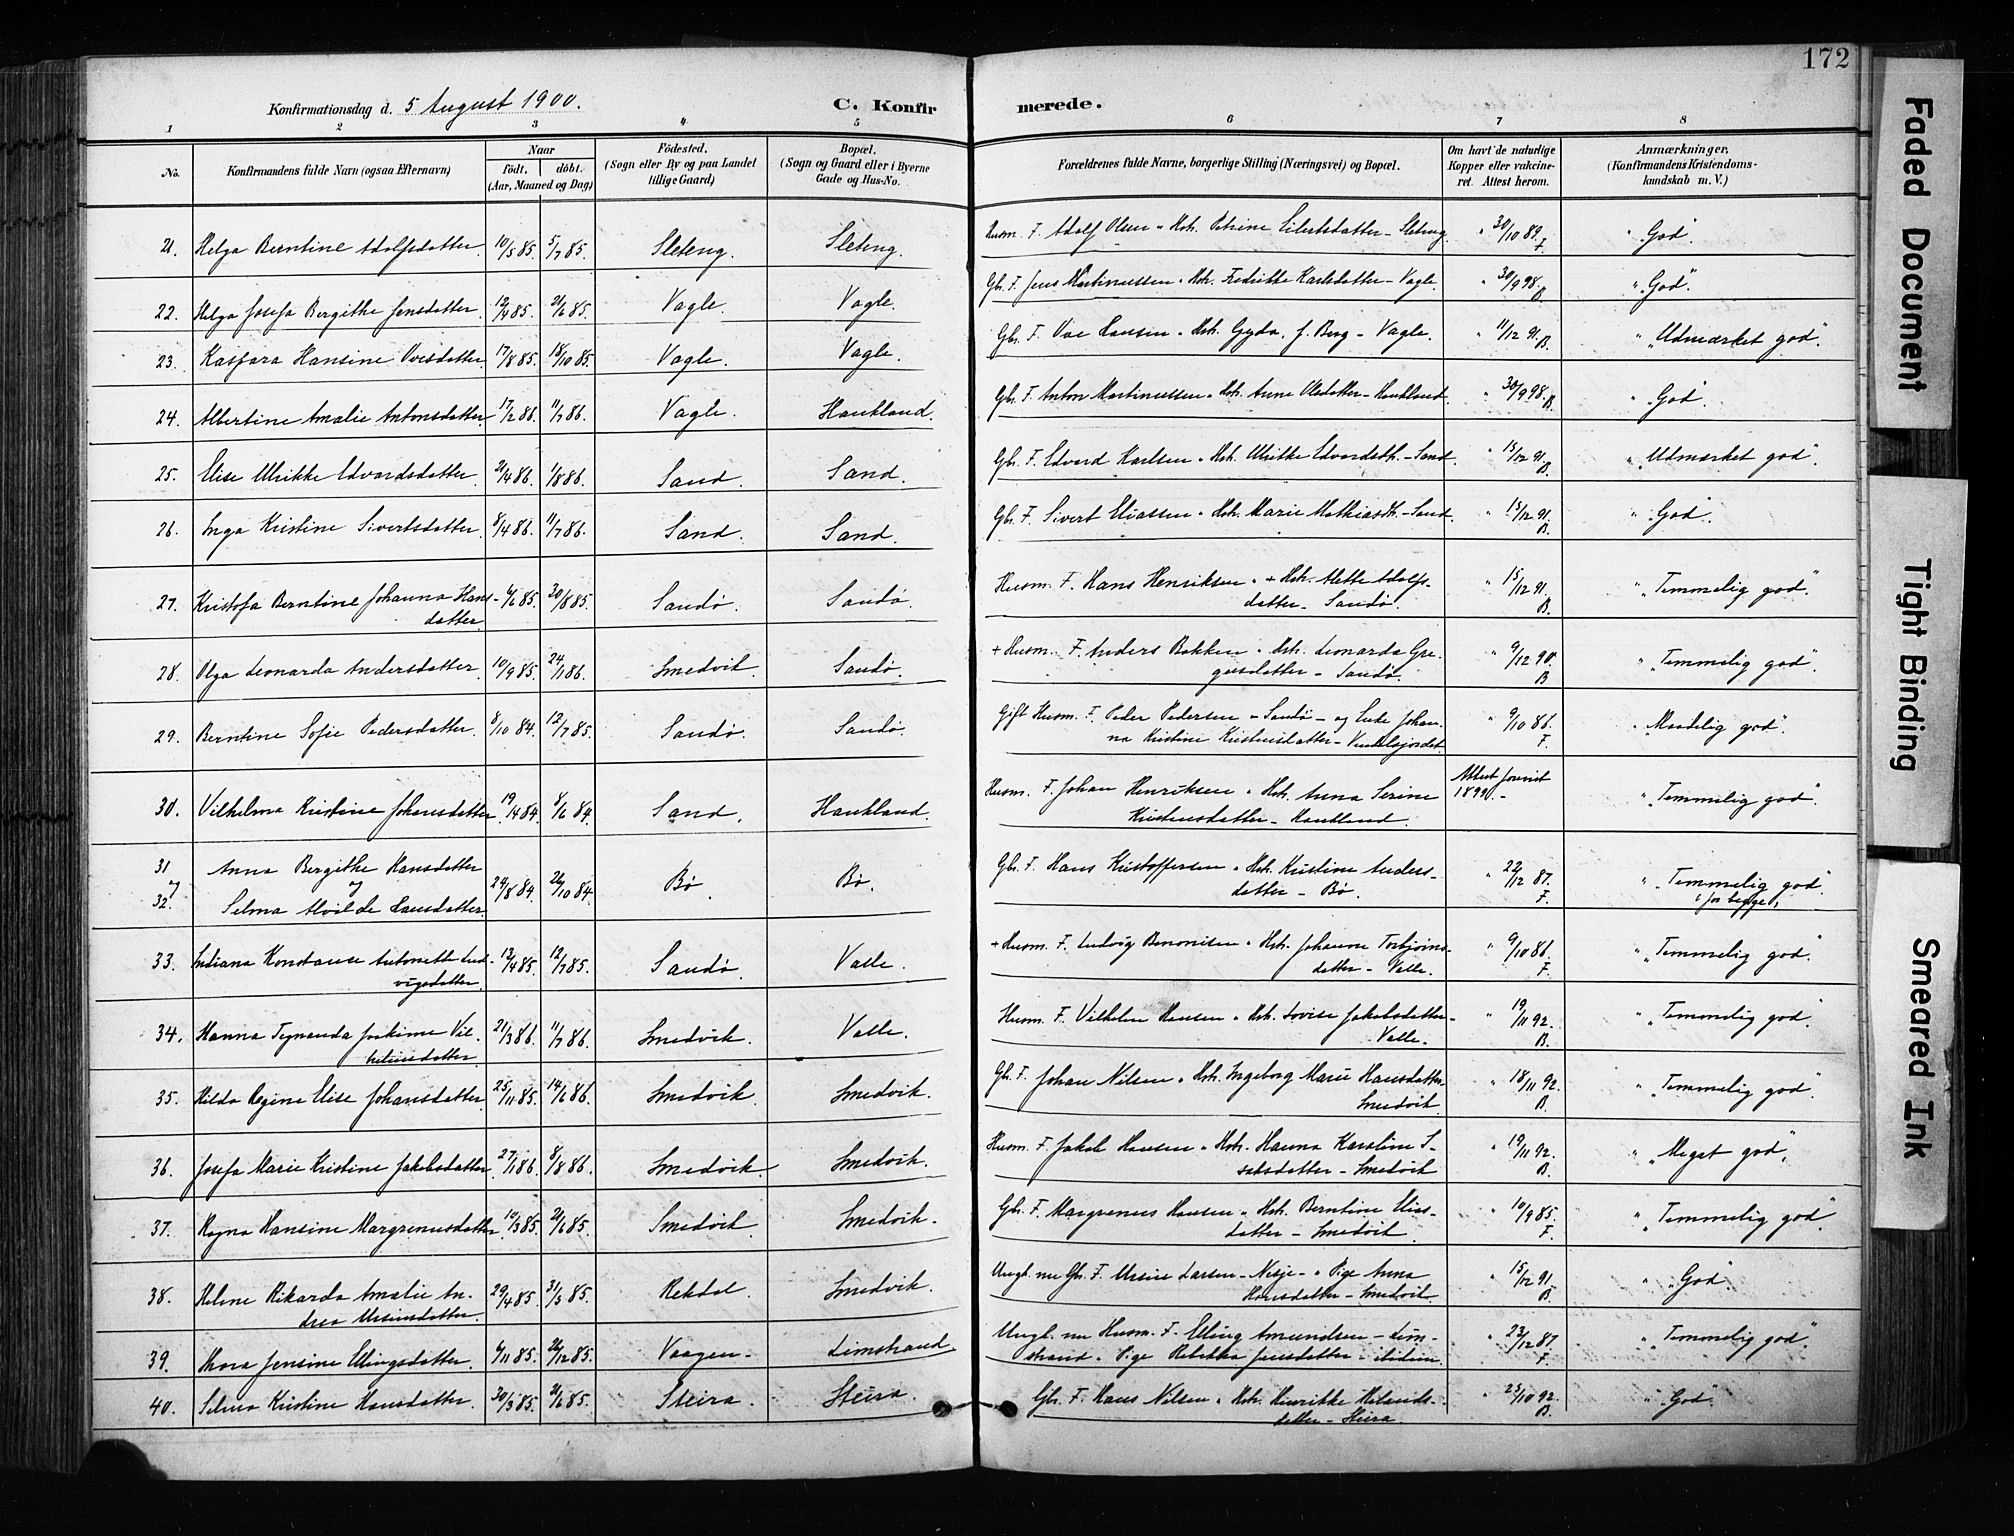 172
Konfirmationsdag d. 5 August 1900.
C. Konfirmerede.
1 2 3 4 5 6 7 8
No.
Konfirmandens fulde Navn (ogsaa Efternavn)
Naar
Födt. döbt.
(Aar, Maaned og Dag)
Födested.
(Sogn eller By og paa Landet
tillige Gaard)
Bopæl.
(Sogn og Gaard eller i Byerne
Gade og Hus-No.
Forældrenes fulde Navne, borgerlige Stilling (Næringsvei) og Bopæl.
Om havt de naturlige
Kopper eller vakcine-
ret. Attest herom.
Anmærkninger.
(Konfirmandens Kristendoms-
kundskab m. V.)
21. Helga Berntine Adolfsdatter. 10/5 85. 5/7 85. Sleteng. Sleteng. Husm. F. Adolf Olsen " Hst. Petrine Eilertsdatter - Sleteng. " 30/10 89. F. " God".
22. Helga Josefa Bergithe Jensdatter. 12/4 85. 21/6 85. Vagle. Vagle. Gbr. F. Jens Martinussen " Hst. Fredrikke Karlsdatter - Vagle. " 30/9 98. B. " "God".
23. Kaspara Hansine Ovesdatter. 17/8 85. 18/10 85. Vagle. Vagle. Gbr. F. Ove Hansen " Hst. Gyda, f. Berg - Vagle. " 11/12 91. B. " "Udmærket god".
24. Albertine Amalie Antonsdatter 17/2 86. 11/7 86. Vagle. Haukland. Gbr. F. Anton Martinussen " Hst. Anne Olsdatter - Haukland. " 30/9 98. B. " God".
25. Elise Ulrikke Edvardsdatter. 2/4 86. 1/8 86. Sand. Sand. Gbr. F. Edvard Karlsen " Hst. Ulrikke Edvardsdt. - Sand. " 15/12 91. B. " "Udmærket god".
26. Inga Kristine Sivertsdatter. 8/4 86. 11/7 86. Sand. Sand. Gbr. F. Sivert Eliassen " Hst. Marie Mathiasdt. - Sand. " 15/12 91. B. " God".
27. Kristofa Berntine Johanna Hans-
datter. 4/6 85. 30/8 85. Sandø. Sandø. Husm. F. Hans Henriksen " + Hst. Mette Adolfs-
datter - Sandø. " 15/12 91. B. " "Temmelig god".
28. Olga Leonarda Andersdatter. 10/9 85. 24/1 86. Smedvik Sandø. + Husm. F. Anders Bakken " Hst. Leonarda Gre-
gusdatter - Sandø. " 9/12 90. B " "Temmelig god".
29. Berntine Sofie Pedersdatter. 8/10 84. 12/7 85. Sandø. Sandø. Gift Husm. F. Peder Pedersen - Sandø - og Enke Johan-
na Kristine Kristensdatter - " 9/10 86. F. " "Maadelig god".
30. Vilhelma Kristine Johansdatter. 19/4 84. 8/6 84. Sand. Haukland. Husm. F. Johan Henriksen " Hst. Anna Serine
Kristensdatter - Haukland. Attest forevist
1899. - " "Temmelig god".
31
og
32. Anna Bergithe Hansdatter
og
Selma Alvilde Hansdatter. 24/8 84. 26/10 84. Bø. Bø. Gbr. F. Hans Kristoffersen " Hst. Kristine Anders-
datter - Bø. " 22/12 87. F. " "Temmelig god".
for begge.
33. Indiana Konstance Antonette Lud-
vigsdatter. 12/4 85. 12/7 85. Sandø. Valle. + Husm. F. Ludvig Benonisen " Hst. Johanne Torbjørns-
datter - Valle. " 9/10 86. F " "Temmelig god".
34. Hanna Joakime Vil-
helmsdatter 21/3 86. 11/7 86. Smedvik. Valle. Husm. F. Vilhelm Hansen " Hst. Lovise Jakobsdatter -
Valle. " 19/11 92. B. " "Temmelig god".
35. Hilda Regine Elise Johansdatter. 25/11 85. 14/6 86. Smedvik. Smedvik. Gbr. F. Johan Nilsen " Hst. Ingeborg Marie Hansdatter
Smedvik. " 18/11 92. B. " "Temmelig god".
36. Josefa Marie Kristine Jakobsdatter. 27/1 86. 8/8 86. Smedvik. Smedvik. Husm. F. Jakob Hansen " Hst. Hanna Karoline I-
saksdatter - Smedvik " 19/11 92. B. " "Meget god".
37. Ragna Hansine Margrenusdatter 10/3 85. 21/6 85. Smedvik Smedvik. Gbr. F. Margrenus Hansen " Hst. Berntine Elias-
datter - Smedvik. " 10/9 85. F. " "Temmelig god".
38. Helene Rikarda Amalie An-
drea Ursinsdatter. 29/4 85. 31/5 85. Rekdal. Smedvik. Ungk. nu Gbr. F. Ursin Larsen - Nesje - " Pige Anna
Hansdatter - Smedvik. " 15/12 91. B. " "God".
39. Thora Jensine Ellingsdatter. 4/11 85. 26/12 85. Vaagen. Limstrand. Ungk. nu Husm. F. Elling Amundsen - Lim-
strand " Pige Rebekka Jensdatter - ibidem. " 23/12 87. F " "Temmelig god".
40. Selma Kristine Hansdatter. 30/3 85. 21/6 85. Steira. Steira. Gbr. F. Hans Nilsen " Hst. Henrikke
datter - Steira. " 25/10 92. B. " "God".
Faded Document
Tight Binding
Smeared Ink